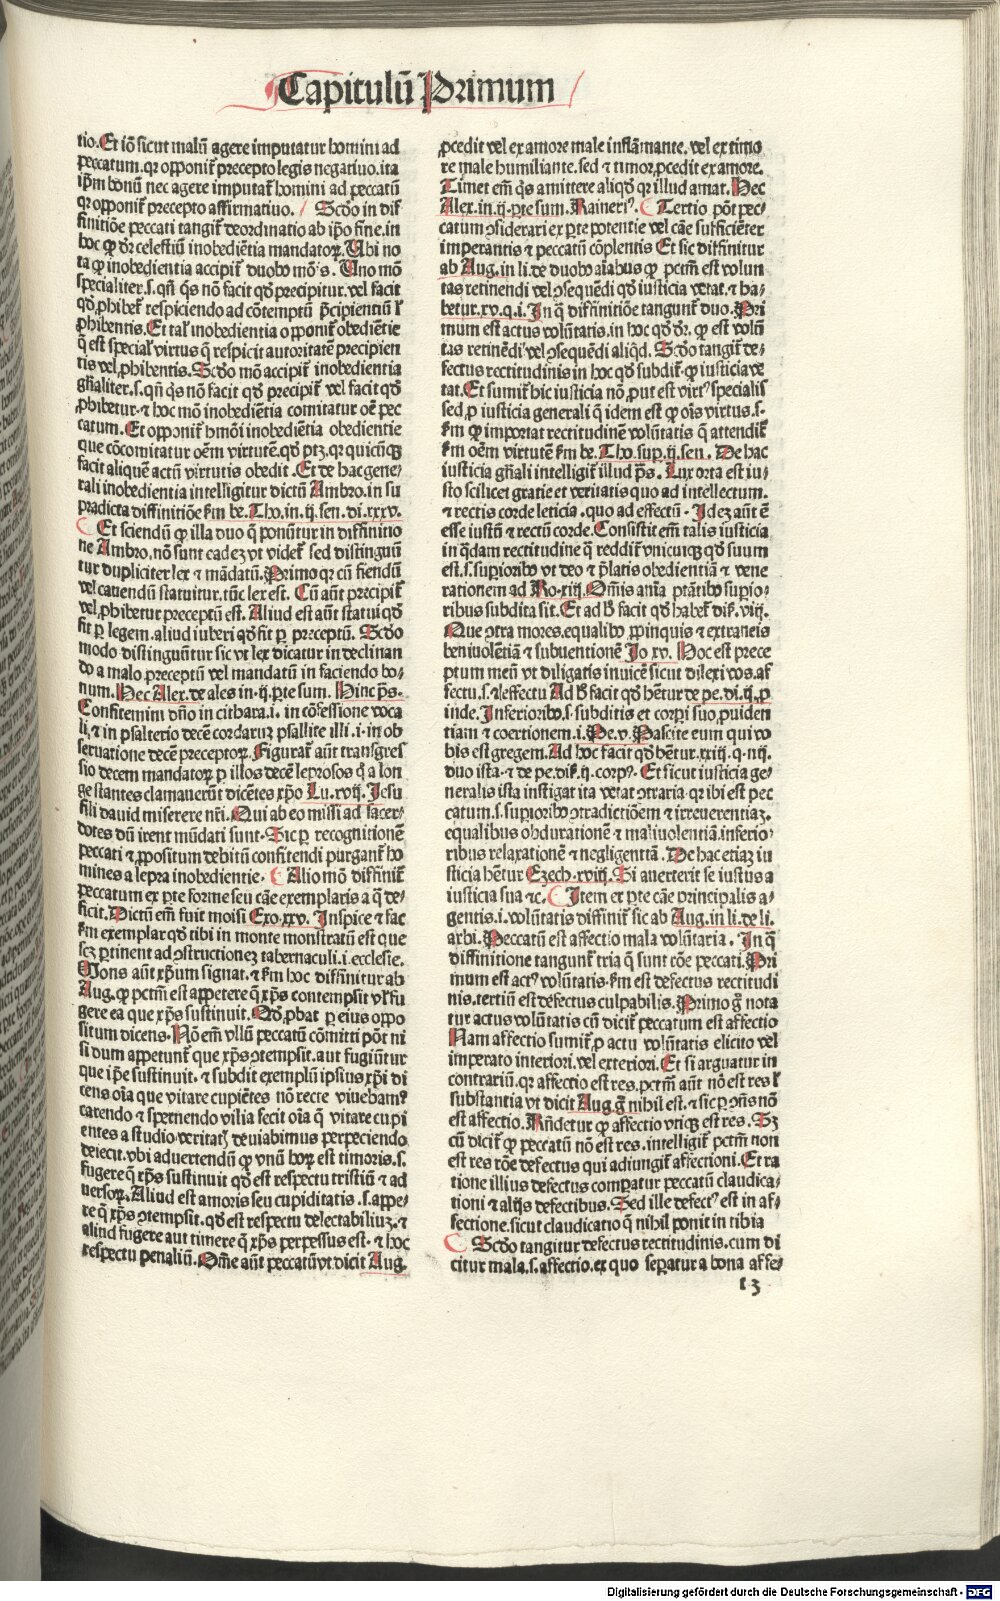 Capitulū Primum
tio. Et iō sicut malū agere imputatur homini ad
peccatum. qr opponit̄ precepto legis negatiuo. ita
ip̄m bonū nec agere imputat̄ homini ad peccatū
qr opponit̄ precepto affirmatiuo. Scd̄o in dif
finitiōe peccati tangit̄ deordinatio ab ip̄o fine. in
hoc ꝙ dr̄ celestiū inobediētia mandatoꝝ. Ubi no
ta ꝙ inobedientia accipit̄ duobꝰ mōis. Uno mō
specialiter. s. qn̄ q̄s nō facit qd̄ precipitur. vel facit
qd̄ ꝓhibet̄ respiciendo ad cōtemptū p̄cipientiū ł
ꝓhibentis. Et tal̄ inobedientia opponit̄ obediētie
q̄ est special̄ virtus q̄ respicit autoritatē precipien
tis vel ꝓhibentis. Scd̄o mō accipit̄ inobedientia
gn̄aliter. s. qn̄ q̄s nō facit qd̄ precipit̄ vel facit qd̄
ꝓhibetur. ⁊ hoc mō inobediētia comitatur oē pec
catum. Et opponit̄ hmōi inobediētia obedientie
que cōcomitatur oēm virtutē. qd̄ ptꝫ. qr quicūqꝫ
facit aliquē actū virtutis obedit. Et de hac gene⸗
rali inobedientia intelligitur dictū Ambro. in su
pradicta diffinitiōe ẜm be. Tho. in. ij. sen. di. xxxv.
Et sciendū ꝙ illa duo q̄ ponūtur in diffinitio
ne Ambro. nō sunt eadeꝫ vt videt̄ sed distinguū
tur dupliciter lex ⁊ mādatū. Primo qr cū fiendū
vel cauendū statuitur. tūc lex est. Cū aūt precipit̄
vel ꝓhibetur preceptū est. Aliud est aūt statui qd̄
fit ꝑ legem. aliud iuberi qd̄ fit ꝑ preceptū. Scd̄o
modo distinguūtur sic vt lex dicatur in declinan
do a malo preceptū vel mandatū in faciendo bo⸗
num. Hec Alex. de ales in. ij. pte sum. Hinc ps̄.
Confitemini dn̄o in cithara. i. in cōfessione voca
li. ⁊ in psalterio decē cordaruꝫ psallite illi. i. in ob
seruatione decē preceptoꝝ. Figurat̄ aūt transgres
sio decem mandatoꝝ ꝑ illos decē leprosos q̄ a lon
ge stantes clamauerūt dicētes xp̄o Lu. xvij. Jesu
fili dauid miserere nr̄i. Qui ab eo missi ad sacer⸗
dotes dū irent mūdati sunt. Sic ꝑ recognitionē
peccati ⁊ ꝓpositum debitū confitendi purgant̄ ho
mines a lepra inobedientie. Alio mō diffinit̄
peccatum ex pte forme seu cāe exemplaris a q̄ de⸗
ficit. Dictū em̄ fuit moisi Exo. xxv. Inspice ⁊ fac
ẜm exemplar qd̄ tibi in monte monstratū est que
scꝫ ꝑtinent ad ꝯstructioneꝫ tabernaculi. i. ecclesie.
Mons aūt xp̄um signat. ⁊ ẜm hoc diffinitur ab
Aug. ꝙ pctm̄ est appetere q̄ xp̄s contempsit vł fu
gere ea que xp̄s sustinuit. Qd̄ ꝓbat ꝑ eius oppo
situm dicens. Nō em̄ vllū peccatū cōmitti pōt ni
si dum appetunt̄ que xp̄s ꝯtempsit. aut fugiūtur
que ip̄e sustinuit. ⁊ subdit exemplū ipsius xp̄i di
cens oīa que vitare cupiētes nō recte viuebamꝰ
carendo ⁊ spernendo vilia fecit oīa q̄ vitare cupi
entes a studio veritatꝭ deuiabimus perpeciendo
deiecit. vbi aduertendū ꝙ vnū hoꝝ est timoris. s.
fugere q̄ xp̄s sustinuit qd̄ est respectu tristiū ⁊ ad
uersoꝝ. Aliud est amoris seu cupiditatis. s. appe⸗
te q̄ xp̄s ꝯtempsit. qd̄ est respectu delectabiliuꝫ. ⁊
aliud fugere aut timere q̄ xp̄s perpessus est. ⁊ hoc
respectu penaliū. Om̄e aūt peccatū vt dicit Aug.
ꝓcedit vel ex amore male inflāmante. vel ex timo
re male humiliante. sed ⁊ timor ꝓcedit ex amore.
Timet em̄ q̄s amittere aliqd̄ qr illud amat. Hec
Alex. in. ij. pte sum. Raineriꝰ. Tertio pōt pec⸗
catum ꝯsiderari ex pte potentie vel cāe sufficiēter
imperantis ⁊ peccatū cōplentis Et sic diffinitur
ab Aug. in li. de duobꝰ aīabus ꝙ pctm̄ est volun
tas retinendi vel ꝯsequēdi qd̄ iusticia vetat. ⁊ ha⸗
betur. xv. q. i. In q̄ diffinitiōe tangunt̄ duo. Pri
mum est actus volūtatis. in hoc qd̄ dr̄. ꝙ est volū
tas retinēdi vel ꝯsequēdi aliqd̄. Scd̄o tangit̄ de⸗
fectus rectitudinis in hoc qd̄ subdit̄. ꝙ iusticia ve
tat. Et sumit̄ hic iusticia nō ꝓut est virtꝰ specialis
sed ꝓ iusticia generali q̄ idem est ꝙ oīs virtus. s.
ẜm ꝙ importat rectitudinē volūtatis q̄ attendit̄
ẜm oēm virtutē ẜm be. Tho. sup. ij. sen. De hac
iusticia gn̄ali intelligit̄ illud ps̄. Lux orta est iu⸗
sto scilicet gratie et veritatis quo ad intellectum.
⁊ rectis corde leticia. quo ad effectū. Idez aūt ē
esse iustū ⁊ rectū corde. Consistit em̄ talis iusticia
in q̄dam rectitudine q̄ reddit̄ vnicuiqꝫ qd̄ suum
est. s. supioribꝰ vt deo ⁊ p̄latis obedientiā ⁊ vene
rationem ad Ro. xiij. Om̄is aīa ptātibꝰ supio⸗
ribus subdita sit. Et ad h̄ facit qd̄ habet̄ dis̄. viij.
Que ꝯtra mores. equalibꝰ ꝓpinquis ⁊ extraneis
beniuolētiā ⁊ subuentionē Jo xv. Hoc est prece
ptum meū vt diligatis inuicē sicut dilexi vos. af
fectu. s. ⁊ effectu Ad h̄ facit qd̄ hētur de pe. di. ij. ꝓ
inde. Inferioribꝰ. s. subditis et corpi suo ꝓuiden
tiam ⁊ coertionem. i. Pe. v. Pascite eum qui vo
bis est gregem. Ad hoc facit qd̄ hētur. xxiij. q. iiij.
duo ista. ⁊ de pe. dis̄. ij. corpꝰ. Et sicut iusticia ge⸗
neralis ista instigat ita vetat ꝯtraria. qr ibi est pec
catum. s. supioribꝰ ꝯtradictiōem ⁊ irreuerentiaꝫ.
equalibus obdurationē ⁊ maliuolentiā. inferio⸗
ribus relaxationē ⁊ negligentiā. De hac etiaꝫ iu
sticia hētur Ezech. xviij. Si auerterit se iustus a
iusticia sua ⁊c. Item ex pte cāe principalis a⸗
gentis. i. volūtatis diffinit̄ sic ab Aug. in li. de li.
arbi. Peccatū est affectio mala volūtaria. In q̄
diffinitione tangunt̄ tria q̄ sunt rōe peccati. Pri
mum est actꝰ volūtatis. ẜm est defectus rectitudi
nis. tertiū est defectus culpabilis. Primo g̊ nota
tur actus volūtatis cū dicit̄ peccatum est affectio
Nam affectio sumit̄ ꝓ actu volūtatis elicito vel
imperato interiori. vel exteriori. Et si arguatur in
contrariū. qr affectio est res. pctm̄ aūt nō est res ł
substantia vt dicit Aug. g̊ nihil est. ⁊ sic ꝑ ꝯn̄s nō
est affectio. Rn̄detur ꝙ affectio vtiqꝫ est res. Sꝫ
cū dicit̄ ꝙ peccatū nō est res. intelligit̄ pctm̄ non
est res rōe defectus qui adiungit̄ affectioni. Et ra
tione illius defectus compatur peccatū claudica⸗
tioni ⁊ alijs defectibus. Sed ille defectꝰ est in af⸗
fectione. sicut claudicatio q̄ nihil ponit in tibia
Scd̄o tangitur defectus rectitudinis. cum di
citur mala. s. affectio. ex quo sepatur a bona affe⸗
13
Digitalisierung gefördert durch die Deutsche Forschungsgemeinschaft - DFG